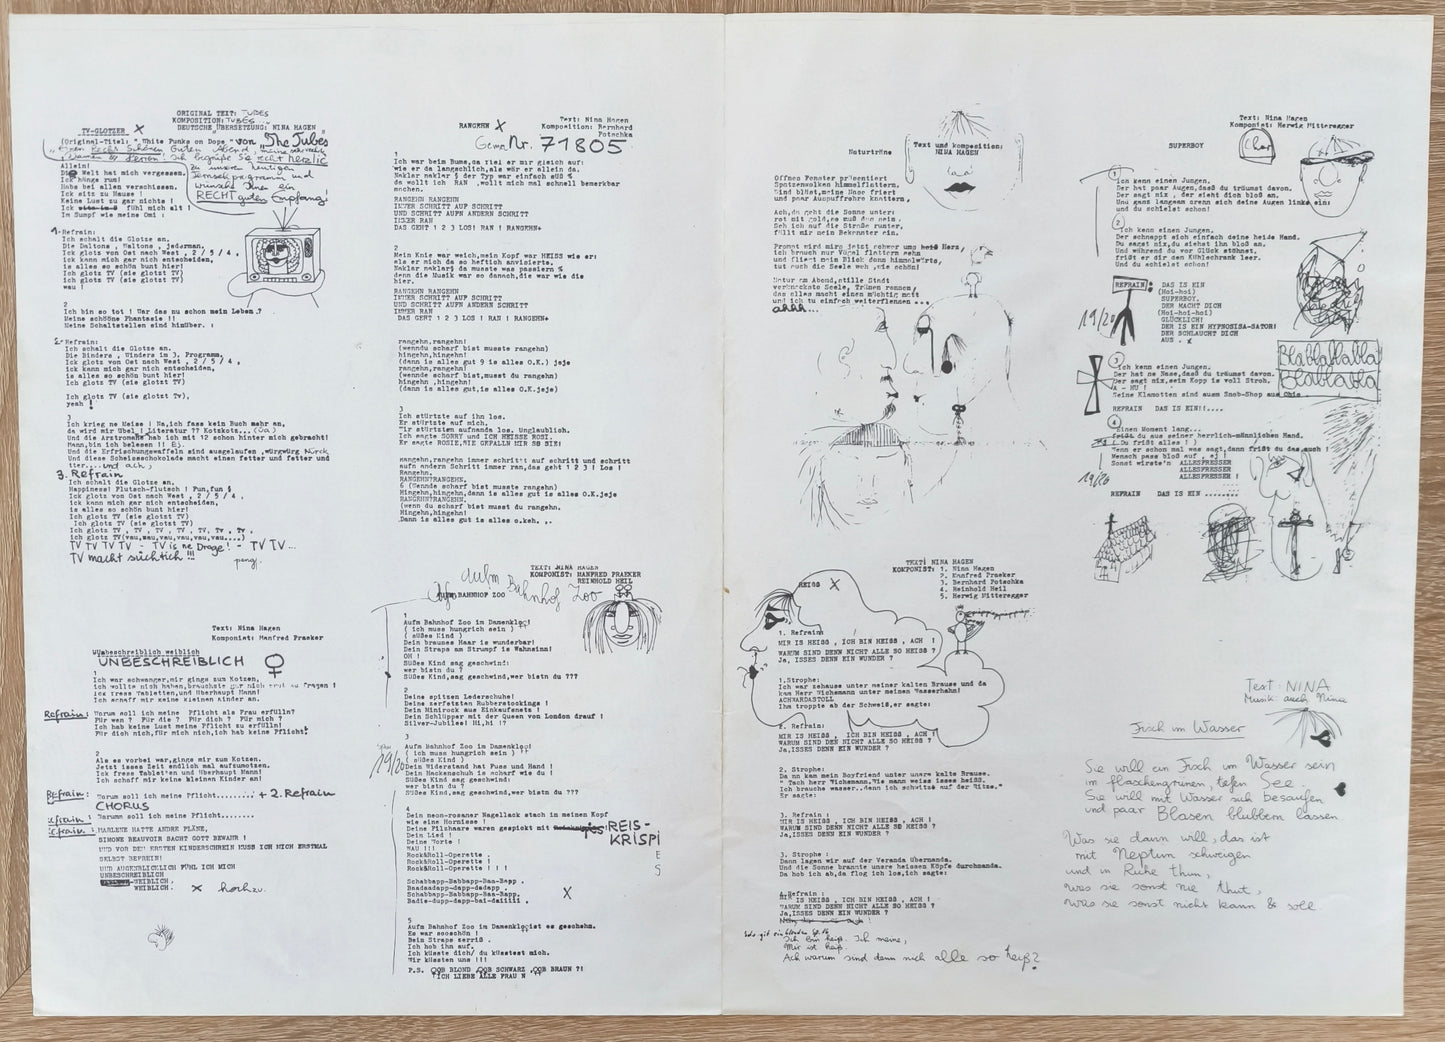 ORIGINAL TEXT: TUBES
KOMPOSITION: TUBES
TV-GLOTZER X DEUTSCHE ÜBERSETZUNG: NINA HAGEN
(Original-Titel: "White Punks on Dope" von "The Tubes"
Einen Recht Schönen Guten Abend, meine
Damen & Herren! Ich begrüße Sie recht herzlic
zu unserem heutigen
Fernsehprogramm und
wünsche Ihnen ein
RECHT guten Empfang!
Allein!
Die Welt hat mich vergessen.
Ich hänge rum!
Habs bei allen verschissen.
Ick sitz zu Hause !
Keine Lust zu gar nichts !
Ick fühl mich alt !
Im Sumpf wie meine Omi :
1. Refrain:
Ich schalt die Glotze an.
Die Daltons , Waltons , jederman.
Ick glotz von Ost nach West , 2 / 5 / 4 ,
ick kann mich gar nich entscheiden,
is alles so schön bunt hier!
Ich glotz TV (sie glotzt TV)
Ich glotz TV (sie glotzt TV)
wau !
2
Ich bin so tot ! War das nu schon mein Leben ?
Meine schööne Phantasie !!
Meine Schaltstellen sind hinüber. :
2. Refrain:
Ich schalt die Glotze an.
Die Binders , Winders im 3. Programm,
Ick glotz von Ost nach West , 2 / 5 / 4 ,
ick kann mich gar nich entscheiden,
is alles so schön bunt hier!
Ich glotz TV (sie glotzt TV)
Ich glotz TV (sie glotzt Tv),
yeah !
3
Ich krieg ne Meise ! Na,ich fass kein Buch mehr an,
da wird mir Übel ! Literatur ?? Kotzkots...(Da)
Und die Arztromane hab ich mit 12 schon hinter mich gebracht!
Mann,bin ich belesen !! Ej.
Und die Erfrischungswaffeln sind ausgelaufen ,würgwürg Nürck
Und diese Scheissschokolade macht einen fetter und fetter und
tter....und ach,
3. Refrain
Ich schalt die Glotze an.
Happiness! Flutsch-flutsch ! Fun,fun §
Ick glotz von Ost nach West , 2 / 5 / 4 ,
ick kann mich gar nich entscheiden,
is alles so schön bunt hier!
Ich glotz TV (sie glotzt TV)
Ich glotz TV (sie glotzt TV)
Ich glotz TV , TV , TV , TV , TV, Tv , Tv.
ich glotz TV(wau,wau,vau,vau,vau,vau....)
TV TV TV TV - TV is ne Droge! - TV TV...
TV macht süchtich !!!
peng!
RANGEHN X
Text: Nina Hagen
Komposition: Bernhard
Potschka
Gema Nr. 71805
1
Ich war beim Bums,da fiel er mir gleich auf:
wie er da langschlich,als wär er allein da.
Naklar naklar § der Typ war einfach süß %
da wollt ich RAN ,wollt mich mal schnell bemerkbar
machen.
RANGEHN RANGEHN
IMMER SCHRITT AUF SCHRITT
UND SCHRITT AUFN ANDERN SCHRITT
IMMER RAN
DAS GEHT ! 2 3 LOS! RAN ! RANGEHN+
2
Mein Knie war weich,mein Kopf war HEISS wie er:
als er mich da so heftich anvisierte.
Naklar naklar§ da musste was passiern %
denn die Musik war so dannoh,die war wie die
hier.
RANGEHN RANGEHN
IMMER SCHRITT AUF SCHRITT
UND SCHRITT AUFN ANDERN SCHRITT
IMMER RAN
DAS GEHT 1 2 3 LOS ! RAN ! RANGEHN+
rangehn,rangehn!
(wenndu scharf bist musste rangehn)
hingehn,hingehn!
(dann is alles gut 9 is alles O.K.) jeje
rangehn,rangehn!
(wennde scharf bist,musst du rangehn)
hingehn ,hingehn!
(dann is alles gut,is alles O.K.jeje)
3
Ich stürtzte auf ihn los.
Er stürtzte auf mich.
Wir stürtzten aufnanda los. Unglaublich.
Ich sagte SORRY und ICH HEISSE ROSI.
Er sagte ROSIE,SIE GEFALLN MIR SO SIE!
Rangehn,rangehn immer schritt auf schritt und schritt
aufn andern Schritt immer ran,das geht 1 2 3 ! Los !
Rangehn.
RANGEHN?RANGEHN.
6 (Wennde scharf bist musste rangehn)
Hingehn,hingehn,dann is alles gut is alles O.K.jeje
RANGEHN?RANGEHN.
(wenn du scharf bist musst du rangehn.
Hingehn,hingehn!
Dann is alles gut is alles o.keh. ..
Text: Nina Hagen
Komponist: Manfred Praeker
Unbeschreiblich weiblich
UNBESCHREIBLICH ♀
1
Ich war schwanger,mir gings zum Kotzen.
ich wollts nich haben,brauchste gar nich erst zu fragen !
Ick fress Tabletten,und überhaupt Mann!
Ich schaff mir keine kleinen Kinder an.
Refrain: Warum soll ich meine Pflicht als Frau erfülln?
Für wen ? Für die ? Für dich ? Für mich ?
Ich hab keine Lust meine Pflicht zu erfülln!
Für dich nich,für mich nich,ich hab keine Pflicht!
2
Als es vorbei war,ginge mir zum Kotzen.
Jetzt isses Zeit endlich mal aufzumotzen.
Ick fress Tabletten und überhaupt Mann!
Ich schaff mir keine kleinen Kinder an!
Refrain: Warum soll ich meine Pflicht........; + 2. Refrain
CHORUS
Refrain: Darumm soll ich meine Pflicht........
Refrain: MARLENE HATTE ANDRE PLÄNE,
SIMONE BEAUVOIR SACHT GOTT BEWAHR !
UND VOR DEM ERSTEN KINDERSCHREIN MUSS ICH MICH ERSTMAL
SELBST BEFREIN!
UND AUGENBLICKLICH FÜHL ICH MICH
UNBESCHREIBLICH
WEIBLICH,
WEIBLICH. X hochzu.
TEXT: NINA HAGEN
KOMPONIST: MANFRED PRAEKER
REINHOLD HEIL
Aufm Bahnhof Zoo
Aufm BAHNHOF ZOO
1
Aufm Bahnhof Zoo im Damenklo!
( ich muss hungrich sein )
( süßes Kind )
Dein brauses Haar is wunderbar!
Dein Straps am Strumpf is Wahnsinn!
OH !
Süßes Kind sag geschwind:
wer bistn du ?
Süßes Kind,sag geschwind,wer bistn du ???
2
Deine spitzen Lederschuhe!
Deine zerfetzten Rubberstockings !
Dein Minirock aus Einkaufsnets !
Dein Schlüpper mit der Queen von London drauf !
Silver-Jubilee! Hi,hi !?
3
19/20
Aufm Bahnhof Zoo im Damenklo!
( ich muss hungrich sein )
( süßes Kind )
Dein Widerstand hat Fuss und Hand !
Dein Hackenschuh is scharf wie du !
Süßes Kind sag geschwind:
wer bistn du ?
Süßes Kind,sag geschwind,wer bistn du ???
4
Dein neon-rosaner Nagellack stach in meinen Kopf
wie eine Hornisse !
Deine Pilzhaare waren gespickt mit REIS-
KRISPI
E
S
Dein Lied !
Deine Worte !
WAU !!!
Rock&Roll-Operette .
Rock&Roll-Operette !
Rock&Roll-Operette ! ! !
Schabbapp-Babbapp-Baa-Bapp .
Baadaadapp-dapp-dadapp .
Schabbapp-Babbapp-Baa-Bapp.
Badis-dupp-dapp-bai-daiiiii .
X
5
Aufm Bahnhof Zoo im Damenklo ist es geschehn.
Es war sooschön !
Beim Straps zerriß .
Ich hob ihn auf,
Ich küsste dich/ du küsstest mich.
Wir küssten uns !!!
P.S. OOB BLOND ,OOB SCHWARZ ,OOB BRAUN ?!
ICH LIEBE ALLE FRAU N
Naturträne
Text und komposition:
NINA HAGEN
Offnes Fenster präsentiert
Spatzenwolken himmelflattern.
Wind bläst,meine Nase friert
und paar Auspuffrohre knattern,
Ach,da geht die Sonne unter:
rot mit gold,so muß das sein .
Seh ich auf die Straße runter,
fällt mir mein Bekannter ein.
Prompt wird mirs jetzt schwer ums Herz,
ich brauch nur Vögel flattern sehn
und fliegt mein Blick dann himmelwärts,
tut auch die Seele weh ,wie schön!
Natur am Abend,stille Stadt
verknackste Seele, Tränen rennen,
das alles macht einen mächtig matt
und ich tu einfach weiterflennen ...
ahhh...
Text: Nina Hagen
Komponist: Herwig Mitteregger
SUPERBOY
Chor
1
Ich kenn einen Jungen,
Der hat paar Augen,dasß du träumst davon.
Der sagt nix , der sieht dich bloß an.
Und ganz langsam drehn sich deine Augen links ein:
und du schielst schon!
2
Ich kenn einen Jungen.
Der schnappt sich einfach deine heiße Hand.
Du sagst nix,du siehst ihn bloß an.
Und während du vor Glück stöhnst,
frißt er dir den Kühlschrank leer.
Und du schielst schon!
REFRAIN: DAS IS EIN
(Hoi-hoi)
SUPERBOY.
DER MACHT DICH
(Hoi-hoi-hoi)
GLÜCKLICH!
DER IS EIN HYPNOSISA-SATOR!
DER SCHLAUCHT DICH
AUS . X
19/20
Blablablabla
Blablabla
3
Ich kenn einen Jungen.
Der hat ne Nase,dasß du träumst davon.
Der sagt nix,sein Kopp is voll Stroh.
A - HU !
Seine Klamotten sind ausm Snob-Shop aus Ohio
REFRAIN DAS IS EIN!!....
4
Einen Moment lang...
frißt du aus seiner herrlich-männlichen Hand.
( Du frißt alles ! )
Wenn er schon mal was sagt,dann frißt du das auch !
Mensch pass bloß auf , ej !
Sonst wirste'n ALLESFRESSER
ALLESFRESSER
ALLESFRESSER !
19/20
REFRAIN DAS IS EIN ........
TEXT: NINA HAGEN
KOMPONIST: 1. Nina Hagen
2. Manfred Praeker
3. Bernhard Potschka
4. Reinhold Heil
5. Herwig Mitteregger
HEISS X
1. Refrain
MIR IS HEISS , ICH BIN HEISS , ACH !
WARUM SIND DENN NICHT ALLE SO HEISS ?
Ja, ISSES DENN EIN WUNDER ?
1.Strophe:
Ich war zehause unter meiner kalten Brause und da
kam Herr Wichsmann unter meinen Wasserhahn!
ACHWARDASTOLL
Ihm troppte ab der Schweiß,er sagte:
2. Refrain :
MIR IS HEISS , ICH BIN HEISS , ACH !
WARUM SIND DEN NICHT ALLE SO HEISS ?
Ja,ISSES DENN EIN WUNDER ?
2. Strophe:
Da nn kam mein Boyfriend unter unsre kalte Brause.
" Tach herr Wichsmann.Wie mann weiss isses heiß.
Ich brauche wasser..denn ich schwitze auf der Ritze."
Er sagte:
3. Refrain :
MIR IS HEISS , ICH BIN HEISS , ACH !
WARUM SIND DENN NICHT ALLE SO HEISS ?
Ja,ISSES DENN EIN WUNDER ?
3. Strophe :
Dann lagen wir auf der Veranda übernanda.
Und die Sonne brannte unsre heissen Köpfe durchnanda.
Da hob ich ab,da flog ich los,ich sagte:
4.Refrain :
MIR IS HEISS , ICH BIN HEISS , ACH !
WARUM SIND DENN NICHT ALLE SO HEISS ?
Ja,ISSES DENN EIN WUNDER ?
Ich bin heiß. Ich meine,
Mir ist heiß.
Ach warum sind denn nich alle so heiß?
Text: NINA
Musik auch Nina
Fisch im Wasser
Sie will ein Fisch im Wasser sein
im flaschengrünen, tiefen See.
Sie will mit Wasser sich besaufen
und paar Blasen blubbern lassen
Was sie dann will, das ist
mit Neptun schweigen
und in Ruhe thun,
was sie sonst nie thut,
was sie sonst nicht kann & soll